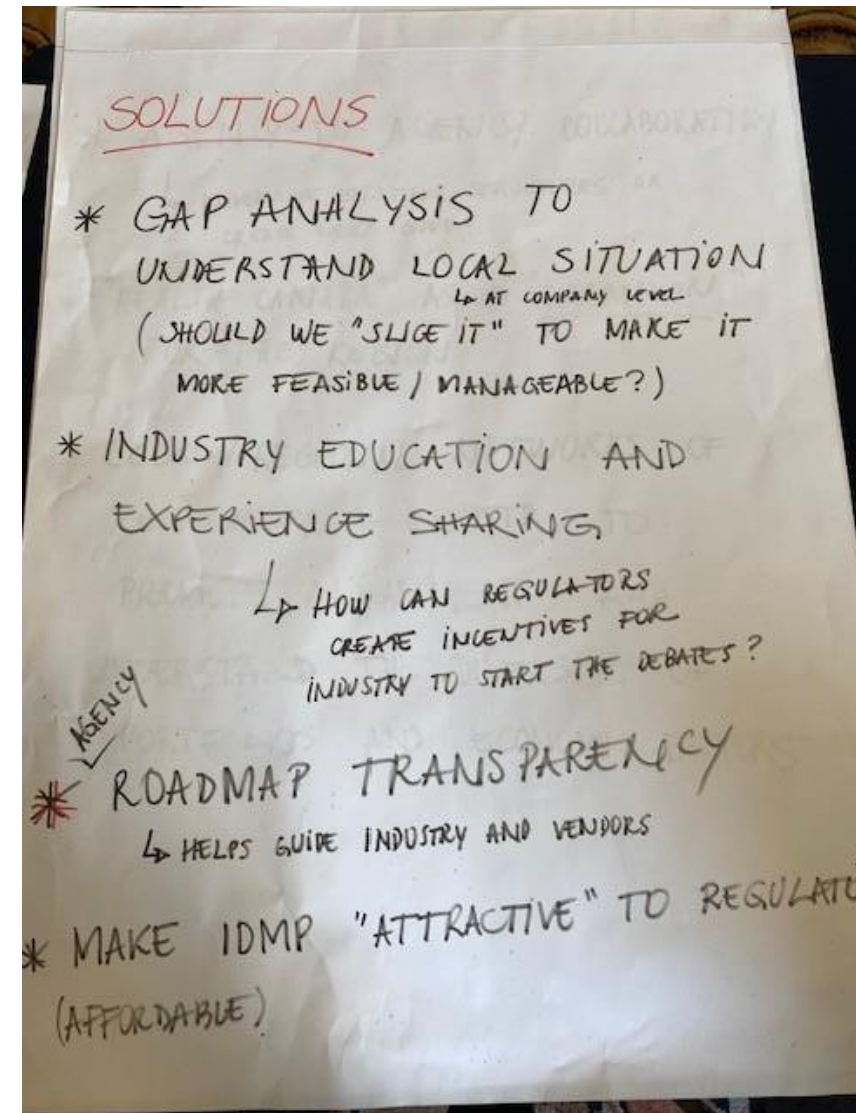 SOLUTIONS
* GAP ANALYSIS TO
UNDERSTAND LOCAL SITUATION
↳ AT COMPANY LEVEL
(SHOULD WE "SLICE IT" TO MAKE IT
MORE FEASIBLE / MANAGEABLE?)
* INDUSTRY EDUCATION AND
EXPERIENCE SHARING
↳ HOW CAN REGULATORS
CREATE INCENTIVES FOR
INDUSTRY TO START THE DEBATES?
AGENCY
* ROADMAP TRANSPARENCY
↳ HELPS GUIDE INDUSTRY AND VENDORS
* MAKE IDMP "ATTRACTIVE" TO REGULATO
(AFFORDABLE)